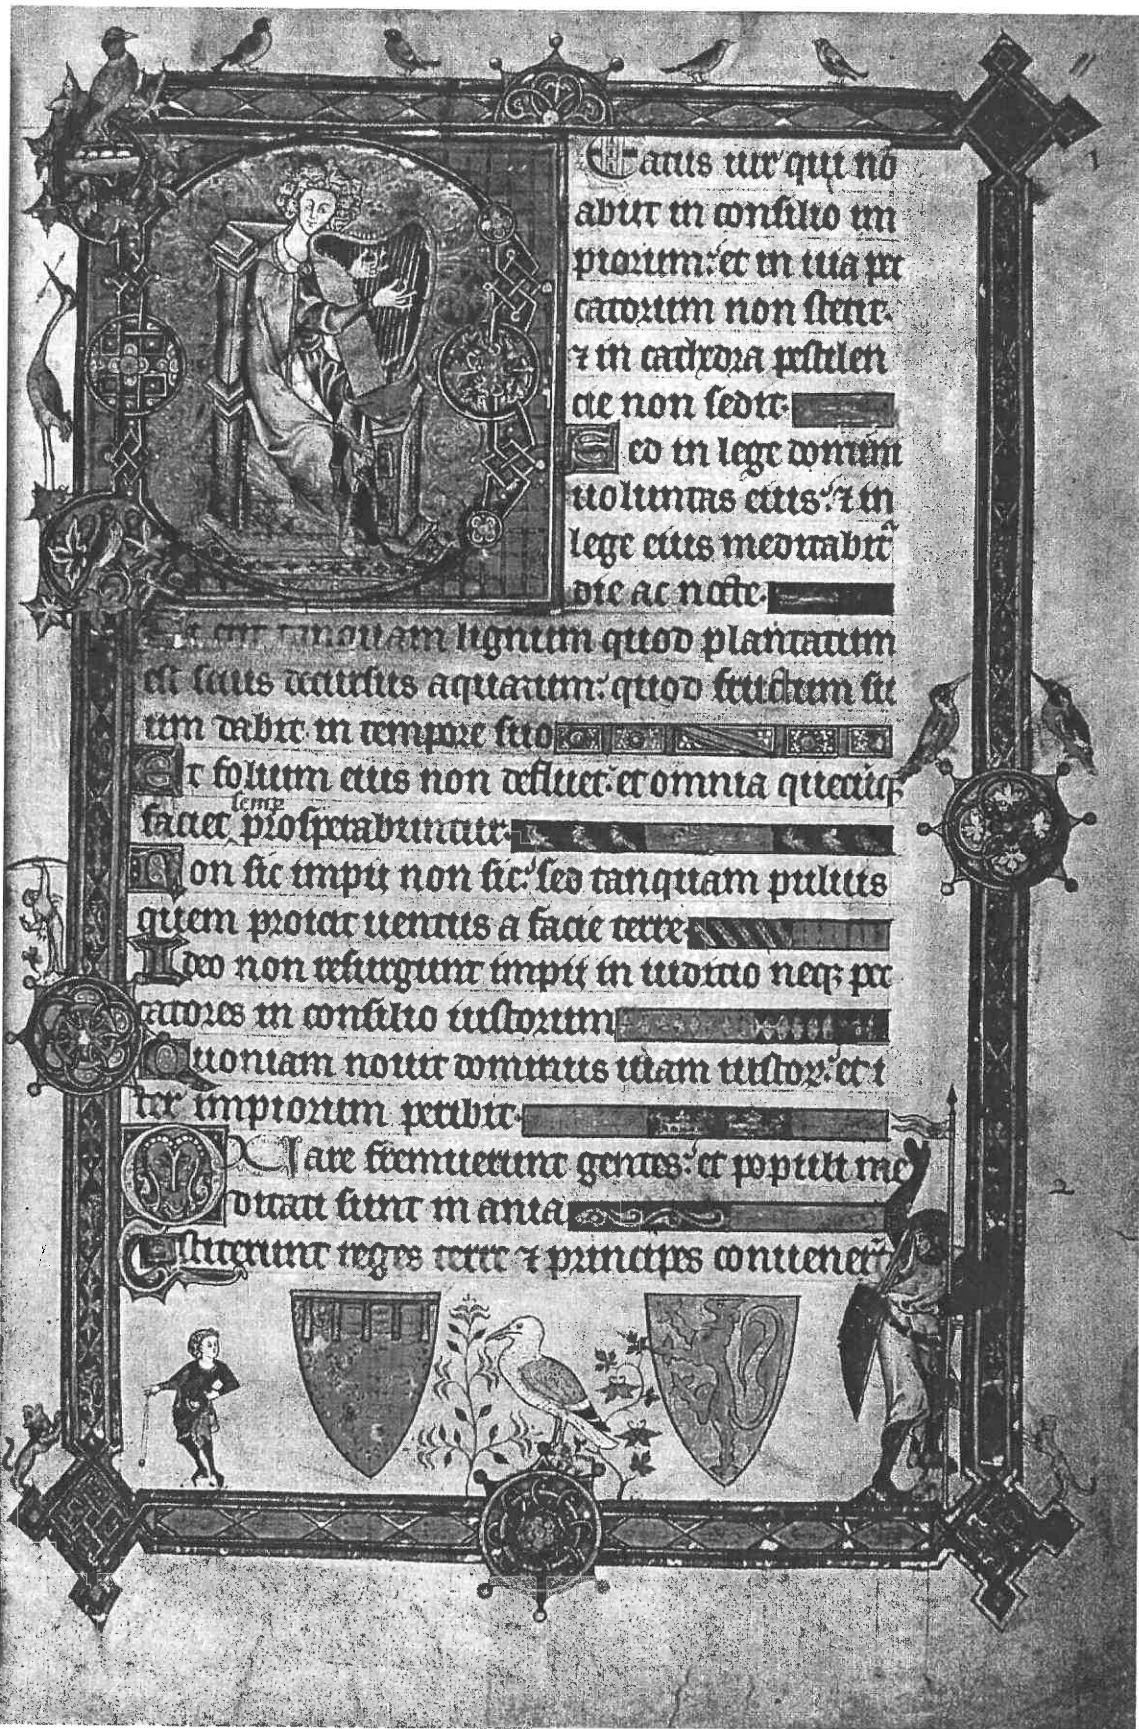 Eatus uir qui no
abiit in consilio im
piorum: et in uia pec
catorum non stetit.
⁊ in cathedra pestilen
cie non sedit.
Sed in lege domini
uoluntas eius: ⁊ in
lege eius meditabit̃
die ac nocte.
Et erit tanquam lignum quod plantatum
est secus decursus aquarum: quod fructum su
um dabit in tempore suo
Et folium eius non defluet: et omnia quecūqꝫ
faciet semp prosperabuntur.
Non sic impii non sic: sed tanquam puluis
quem proicit uentus a facie terre
Ideo non resurgunt impij in iudicio neqꝫ pec
catores in consilio iustorum
Quoniam nouit dominus uiam iustoꝝ: et i
ter impiorum peribit.
Quare fremuerunt gentes: et populi me
ditati sunt inania
Astiterunt reges terre ⁊ principes conuener̃t
1
2